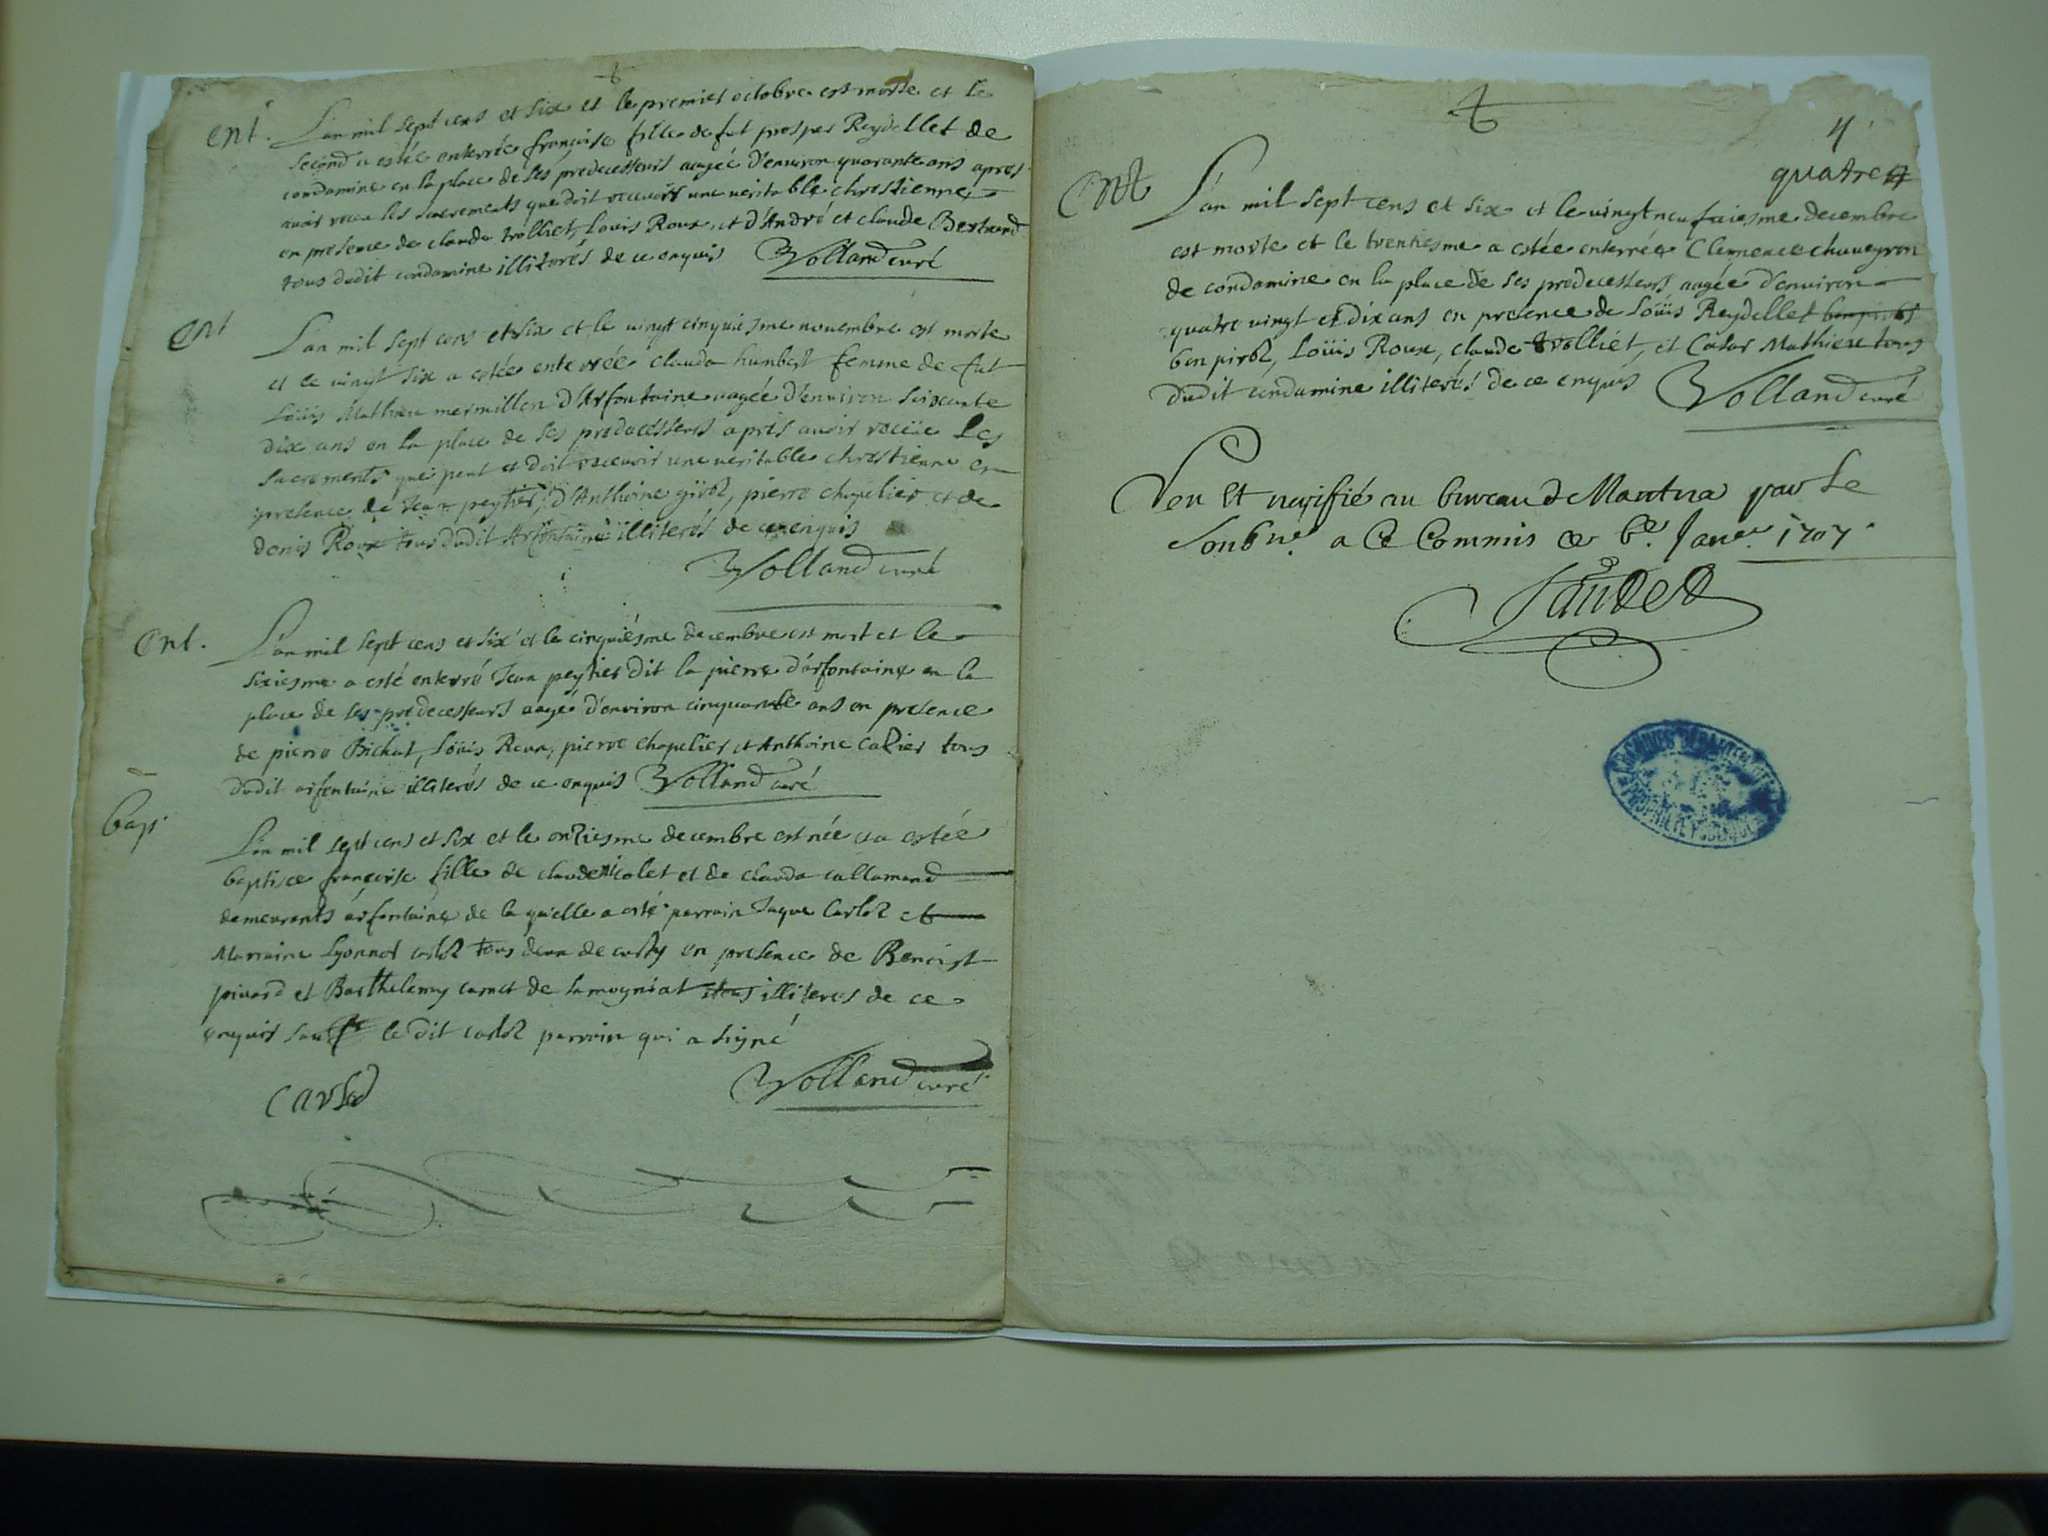 ent.
L'an mil sept cens et six et le premier octobre est morte et le
second a estée enterrée françoise fille de fut prosper Reydellet de
condamine en la place de ses predecesseurs aagée d'environ quarante ans apres
avoir receu les sacrements que doit recevoir une veritable chrestienne
en presence de claude trolliet, Louis Roux, et d'André et claude Bertrand
tous dudit condamine illiterés de ce enquis Volland curé
ent
L'an mil sept cens et six et le vingt cinquiesme novembre est morte
et le vingt six a estée enterrée clauda humbert femme de fut
Loüis Mathieu mermillon d'Arfontaine aagée d'environ soixante
dix ans en la place de ses predecesseurs apres avoir receüe les
sacrements que peut et doit recevoir une veritable chrestienne en
presence de Jean peytier, d'Anthoine pirod, pierre chapelier et de
denis Roux tous dudit Arfontaine illiterés de ce enquis
Volland curé
ent.
L'an mil sept cens et six et le cinquiesme decembre est mort et le
sixiesme a esté enterré Jean peytier dit la pierre d'arfontaine en la
place de ses predecesseurs aagé d'environ cinquante ans en presence
de pierre Bichat, Loüis Roux, pierre chapelier et Anthoine cadier tous
dudit arfontaine illiterés de ce enquis Volland curé
bap.
L'an mil sept cens et six et le onziesme decembre est née et a estée
baptisée françoise fille de claude nicolet et de clauda callamand
demeurants arfontaine de la quelle a esté parrain Jaque Carlod et
Marraine Lyonnet carlod tous deux de in presence de Benoist
pivard et Barthelemy carret de lamogniat tous illiteres de ce
enquis sauf le dit carlod parrain qui a signé
Carlod
Volland curé
4
quatre
ent
L'an mil sept cens et six et le vingt neufviesme decembre
est morte et le trentiesme a estée enterrée Clemence chaveyron
de condamine en la place de ses predecesseurs aagée d'environ
quatre vingt et dix ans en presence de Loüis Reydellet
ben pirod, Loüis Roux, claude trolliet, et Cesar Mathieu tous
dudit condamine illiterés de ce enquis Volland curé
Veu Et veriffié au bureau de Nantua par Le
Soubne. a Ce Commis ce 6e. Janer. 1707